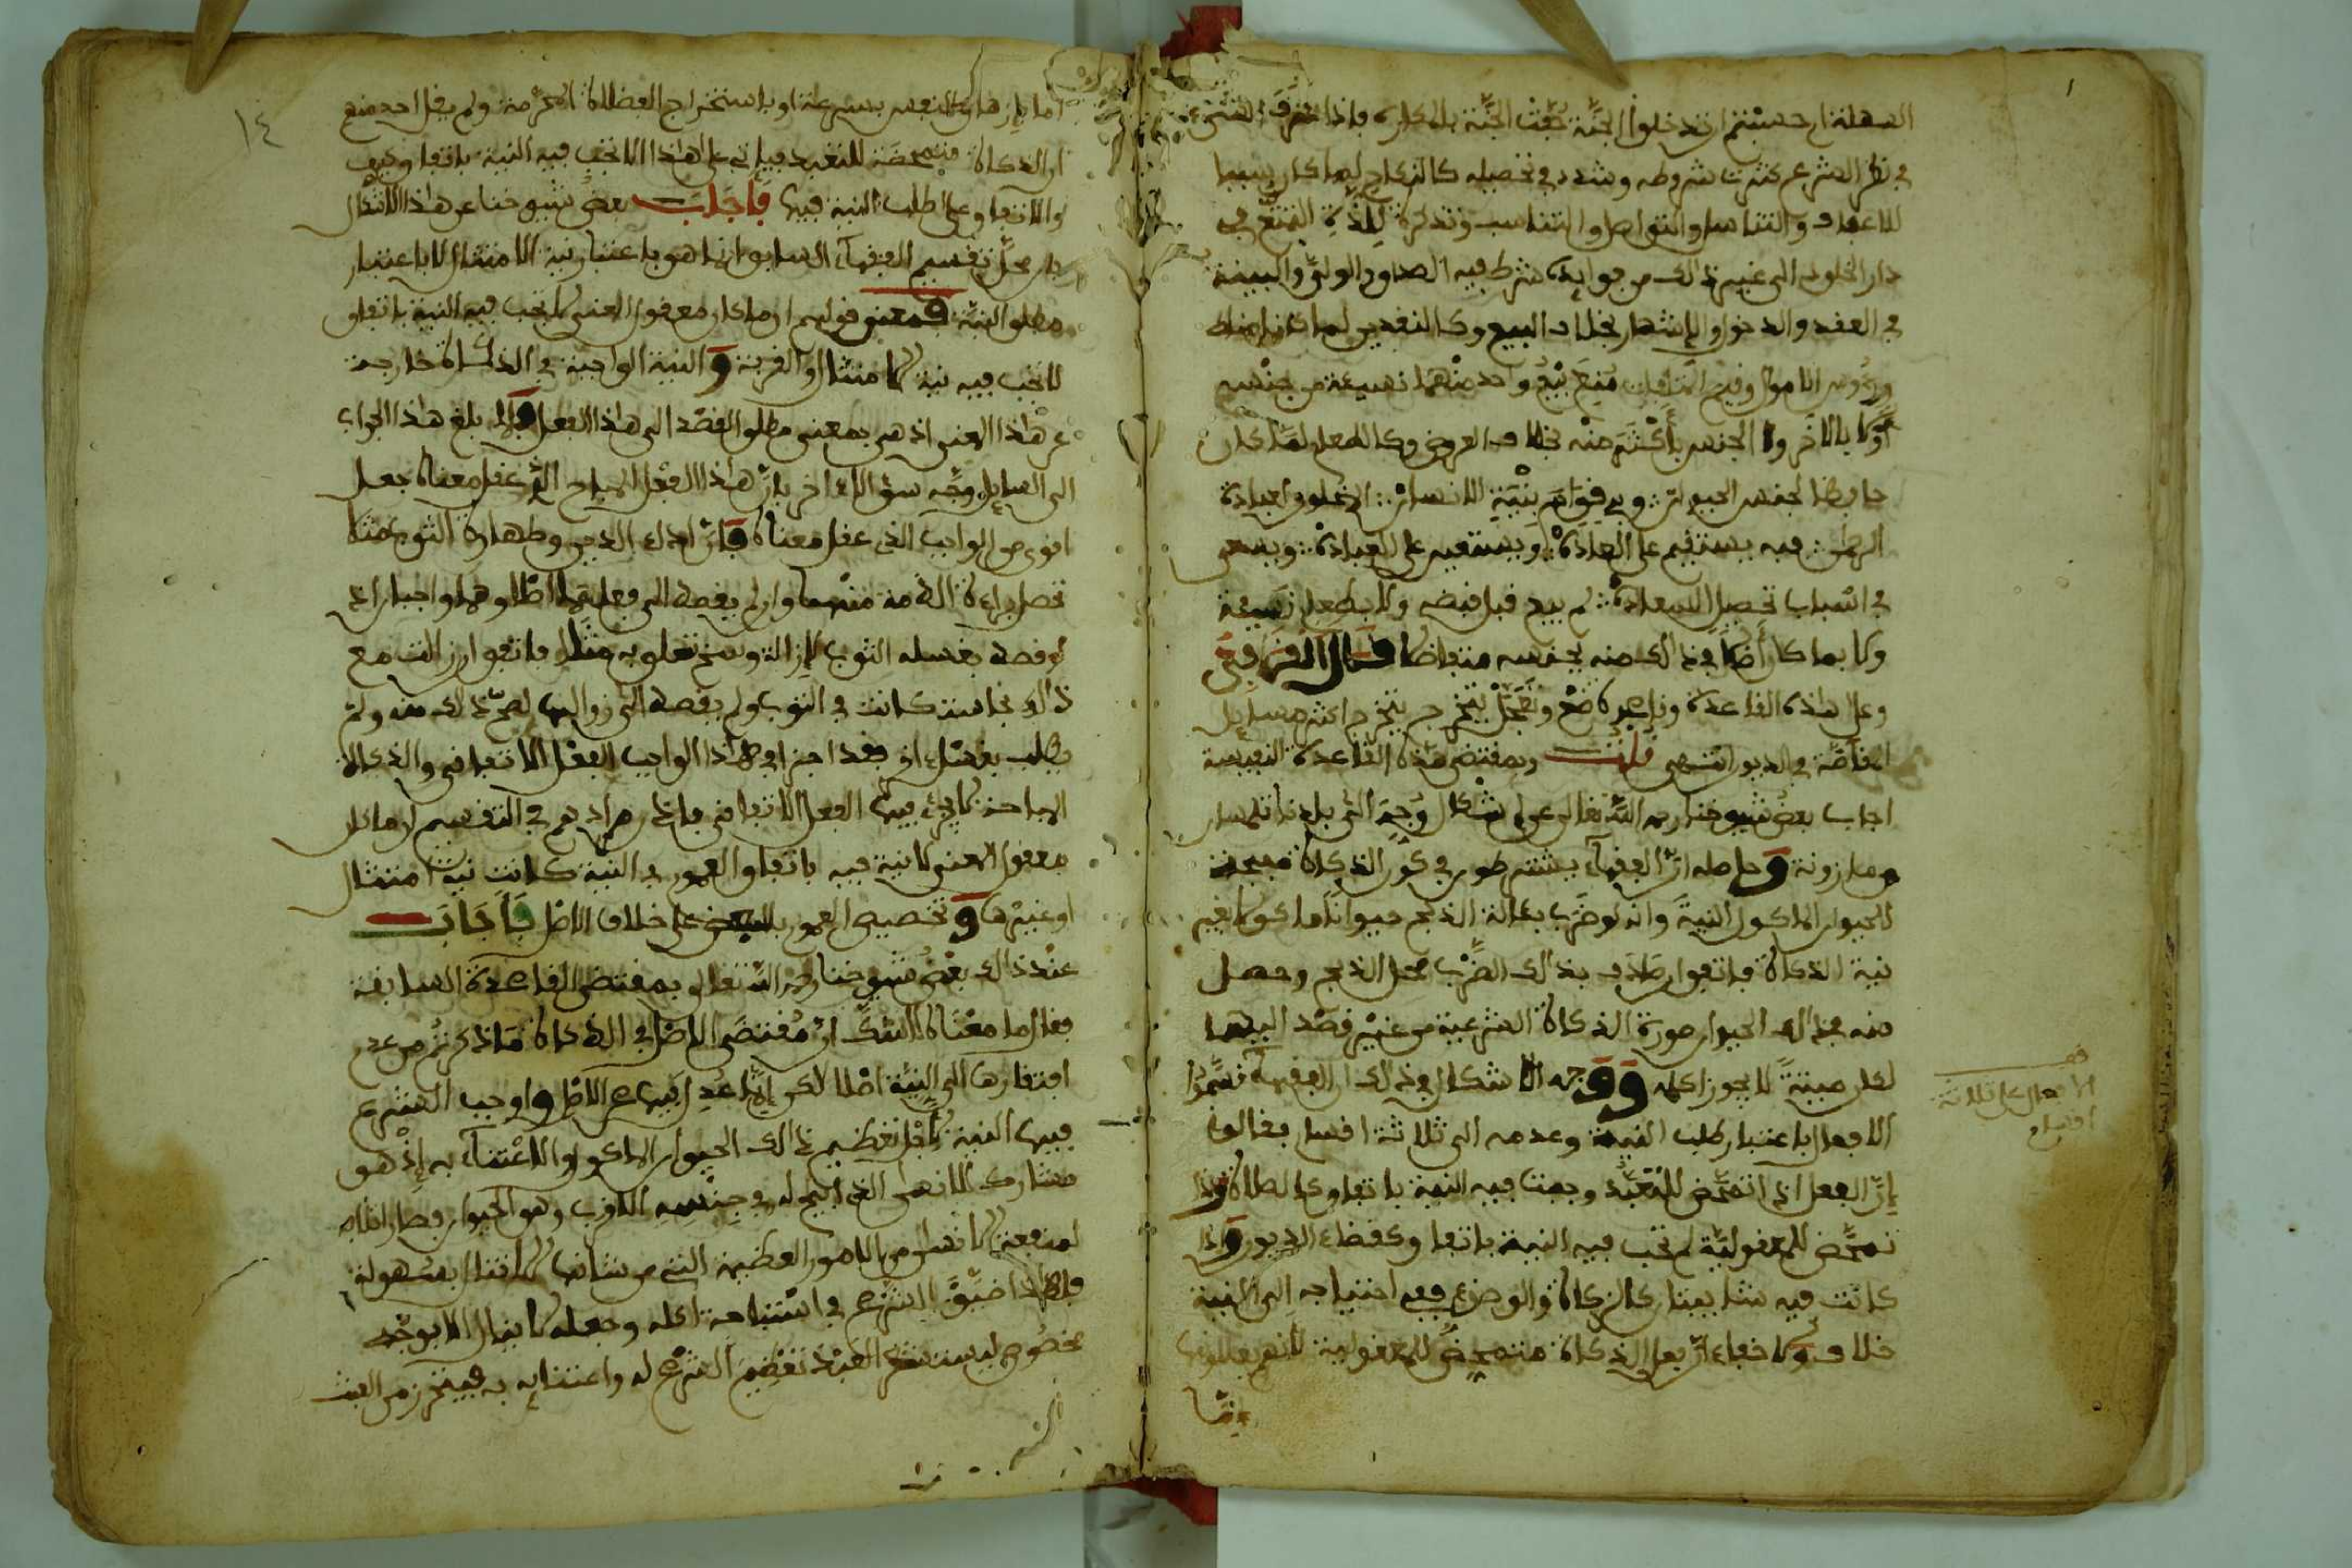 السهلة ام حسبتم ان تدخلوا الجنة حفت الجنة بالمكاره فاذا شرف الشيء
في نظر الشرع كثرت شروطه وشدد في تحصيله كالنكاح لما كان سببا
للاعفاف والتناسل والتواصل والتناسب وتذكرة للذة التمتع في
دار الخلود الى غير ذالك من فوايده شرط فيه الصداق والولي والبينة
في العقد والدخول والاشهار بخلاف البيع وكالنقدين لما كانا مناط
رءوس الاموال وقيم المتلفات منع بيع واحد منهما نسيئة من جنسه
او بالاخر ولا الجنس باكثر منه بخلاف العروض وكالطعام لما كان
حافظا لجنس الحيوان وبه قوام بنية الانسان المخلوق لعبادة
الرحمان فبه يستقيم على العادة ويستعين على العبادة ويسعى
في اسباب تحصيل السعادة لم يبع قبل قبضه ولا بطعام نسيئة
ولا بما كان اصلا في ذالك منه بجنسه متفاضلا قال القرافي
وعلى هاذه القاعدة وتعجل يتخرج كثير من مسايل
المقاصة في الديون انتهى قلت وبمقتضى هاذه القاعدة النفيسة
اجاب بعض شيوخنا رحمه الله تعالى عن اشكال وجه الى بلدنا تلمسان
ومازونة وحاصله ان الفقهاء يشترطون في كون الذكاة مبيحة
للحيوان الماكول النية وانه لو ضرب بئالة الذبح حيوانا ماكولا بغير
نية الذكاة فاتفق ان صادف بذالك الضرب محل الذبح وحصل
منه في ذالك الحيوان صورة الذكاة الشرعية من غير قصد اليها
لكان ميتة لا يجوز اكله ووجه الاشكال في ذالك ان الفقهاء قسموا
الافعال باعتبار طلب النية وعدمه الى ثلاثة اقسام فقالوا
ان الفعل اذا تمحض للتعبد وجبت فيه النية باتفاق كالصلاة واذا
تمحض للمعقولية لم تجب فيه النية باتفاق كقضاء الديون واذا
كانت فيه شايبتان كالزكاة والوضوء ففي احتياجه الى النية
خلاف ولا خفاء ان فعل الذكاة متمحض للمعقولية لانهم يعللونها
قف
الافعال على ثلاثة
اقسام
١٤
اما بازهاق النفس بسرعة او باستخراج الفضلات المحرمة ولم يقل احد منهم
ان الذكاة متمحضة للتعبد فياتي على هاذا الا تجب فيه النية باتفاق وكيف
والاتفاق على طلب النية فيها فاجاب بعض شيوخنا عن هاذا الاشكال
بان محل تقسيم الفقهاء السابق انما هو باعتبار نية الامتثال لا باعتبار
مطلق النية فمعنى قولهم ان ما كان معقول المعنى لا تجب فيه النية باتفاق
لا تجب فيه نية الامتثال والقربة والنية الواجبة في الذكاة خارجة
عن هاذا المعنى اذ هي بمعنى مطلق القصد الى هاذا الفعل ولما بلغ هاذا الجواب
الى السايل وجه سؤالا ءاخر بان هاذا الفعل المباح الذي عقل معناه جعل
اقوى من الواجب الذي عقل معناه فان اداء الدين وطهارة الثوب مثلا
تحصل براءة الذمة منهما وان لم يقصد الى فعلهما اصلا وهما واجبان اذ
لو قصد بغسله الثوب ازالة وسخ تعلق به مثلا فاتفق ان زالت مع
ذالك نجاسة كانت في الثوب ولم يقصد الى زوالها لصح ذالك منه ولم
يطلب بغسل اخر فقد اجزا في هاذا الواجب الفعل الاتفاقي والذكاة
المباحة لا يجزئ فيها الفعل الاتفاقي فاذن مرادهم في التقسيم ان ما كان
معقول المعنى لا نية فيه باتفاق العموم في النية كانت نية امتثال
او غيرها وتخصيص العموم بالبعض على خلاف الاصل فاجاب
عند ذالك بعض شيوخنا رحمه الله تعالى بمقتضى القاعدة السابقة
فقال ما معناه لا شك ان مقتضى الاصل في الذكاة ما ذكرتم من عدم
افتقارها الى النية اصلا لكن انما عدل فيها عن الاصل واوجب الشرع
فيها النية لاجل تعظيم ذالك الحيوان الماكول والاعتناء به اذ هو
مشارك للانسان الذي ابيح له في جنسه الاقرب وهو الحيوان فصار اتلافه
لمنفعة الانسان من الامور العظيمة التي من شانها الا تنال بسهولة
فلهاذا ضيق الشرع في استباحة اكله وجعله لا ينال الا بوجه
مخصوص ليستشعر العبد تعظيم الشرع له واعتنايه به فيتحرز من العبث